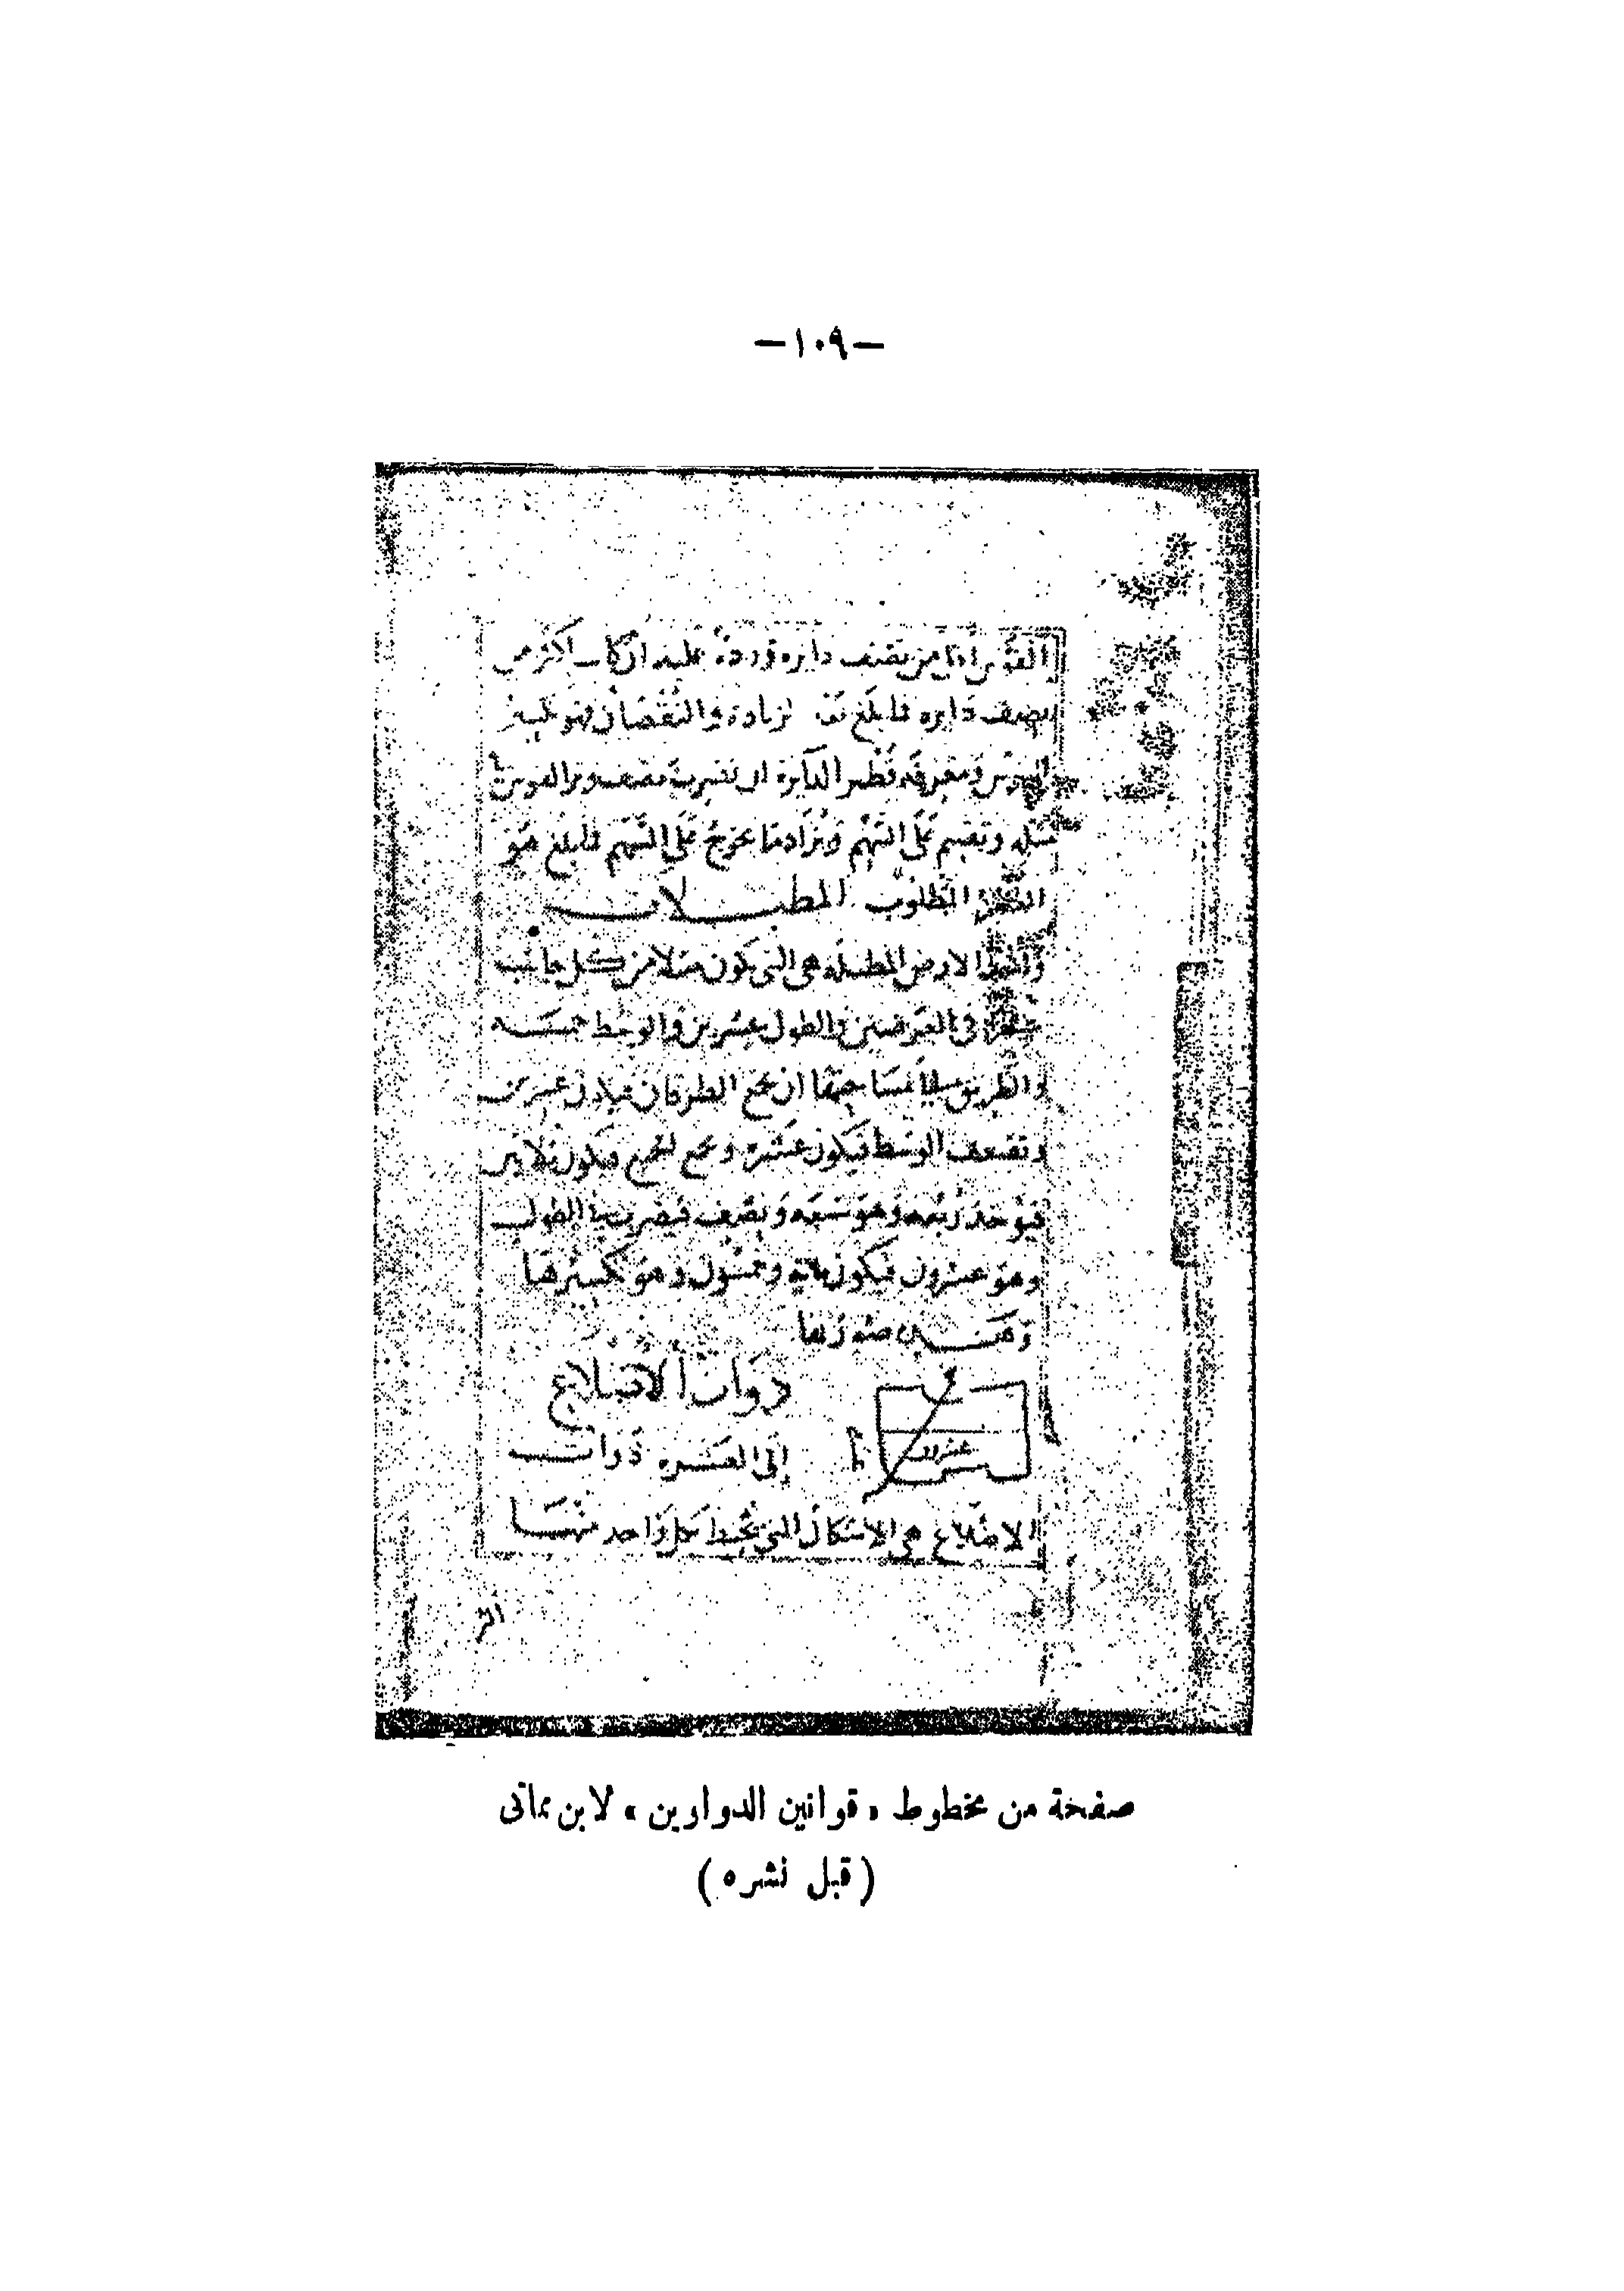 —١٠٩—
القوس أقل من نصف دايرة وزده عليه ان كان أكثر من
نصف دايره فما بلغ بعد الزيادة والنقصان فهو تكسير
القوس ومعرفة قطر الدايرة ان تضرب نصف وتر القوس في
مثله وتقسم على السهم وتزاد ما يخرج على السهم فما بلغ هو
القطر المطلوب المطبلات
واما الارض المطبله هي التي تكون مثلا من كل جانب
عشرة في العرضين والطول عشرين والوسط خمسه
والطريق الى مساحتها ان يجمع الطرفان فيكون عشرين
وتضعف الوسط فيكون عشرة ويجمع الجميع فيكون ثلاثين
فيؤخذ ربعه وهو سبعه ونصف فيضرب في الطول
وهو عشرون فيكون مائه وخمسون وهو تكسيرها
وهذه صورتها
ذوات الاضلاع
عشرون
إلى العشره ذوات
الاضلاع هي الاشكال التي يحيط بكل واحد منها
صفحة من مخطوط « قوانين الدواوين » لابن مماتى
( قبل نشره )